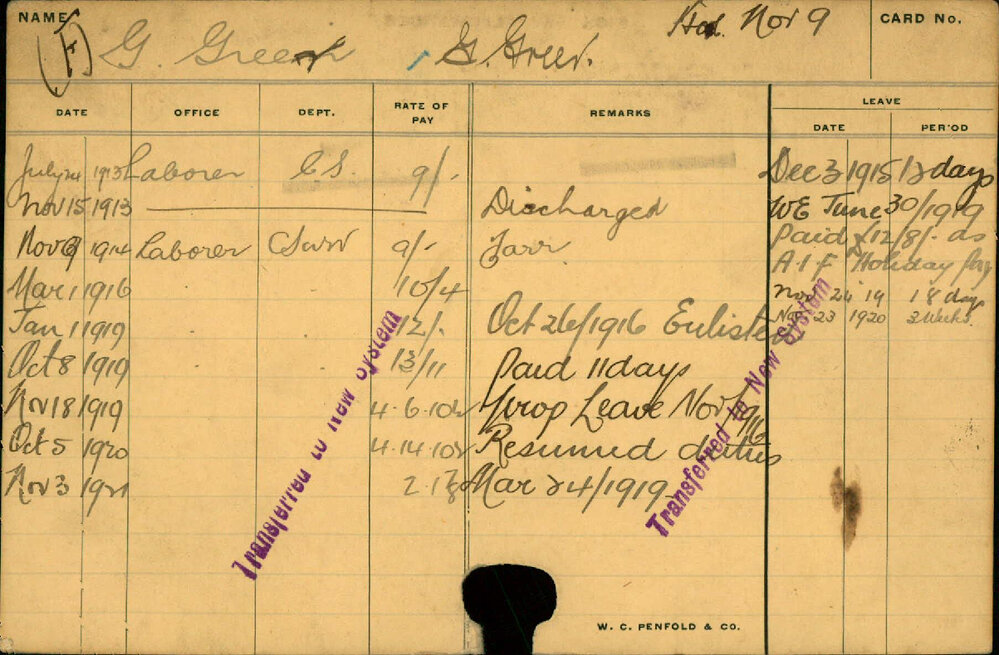 NAME G. Green G. Green. Hol. Nov 9 CARD No.
DATE OFFICE DEPT. RATE OF PAY REMARKS LEAVE
DATE PERIOD
July 24 1913 Laborer C.S. 9/- Dec 3 1915 12 days
Nov 15 1913 Discharged WE June 30/1919
Nov 9 1914 Laborer 9/- Farr Paid £12/8/- as
A.I.F Holiday Pay
Mar 1 1916 10/4 Nov 24 19 18 days
Jan 1 1919 12/- Oct 26/1916 Enlisted Nov 23 1920 2 Weeks
Oct 8 1919 13/11 Paid 11 days
Nov 18 1919 4.6.10½ Prop Leave Nov
Oct 5 1920 4.14.10½ Resumed duties
Nov 3 1921 Mar 24/1919
Transferred to New System
Transferred to New System
W. C. PENFOLD & CO.